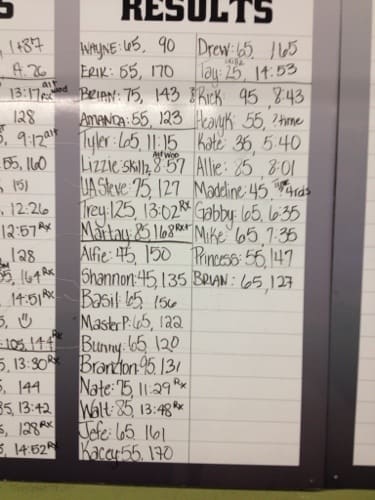 S
RESULTS
, 1+87
, 9:12 alt
128
55, 160
, 151
, 12:26
12:57 Rx
128
55, 164 Rx
, 14:51 Rx
5, ☺
: 105, 144 Rx
5, 13:30 Rx
5, 144
85, 13:42
5, 128 Rx
5, 14:52 Rx
WAYNE: 65, 90
ERIK: 55, 170
BRIAN: 75, 143
AMANDA: 55, 123
Tyler: 65, 11:15
Lizzie: skillz 8:57
UA Steve: 75, 127
Trey: 125, 13:02 Rx
Martay: 85, 168 Rx+
Alfie: 45, 150
Shannon: 45, 135
Basil: 65, 156
Master P: 65, 122
Bunny: 65, 120
Brandon: 95, 131
Nate: 75, 11:29 Rx
Walt: 85, 13:48 Rx
Jefe: 65, 161
Kacey: 55, 170
Drew: 65, 165
Tay: 25, 14:53
Rick: 95, 8:43
Heavyk: 55, ? time
Kate: 35, 5:40
Allie: 85, 8:01
Madeline: 45, 4 rds
Gabby: 65, 6:35
Mike: 65, 7:35
Princess: 55, 147
BRIAN: 65, 127